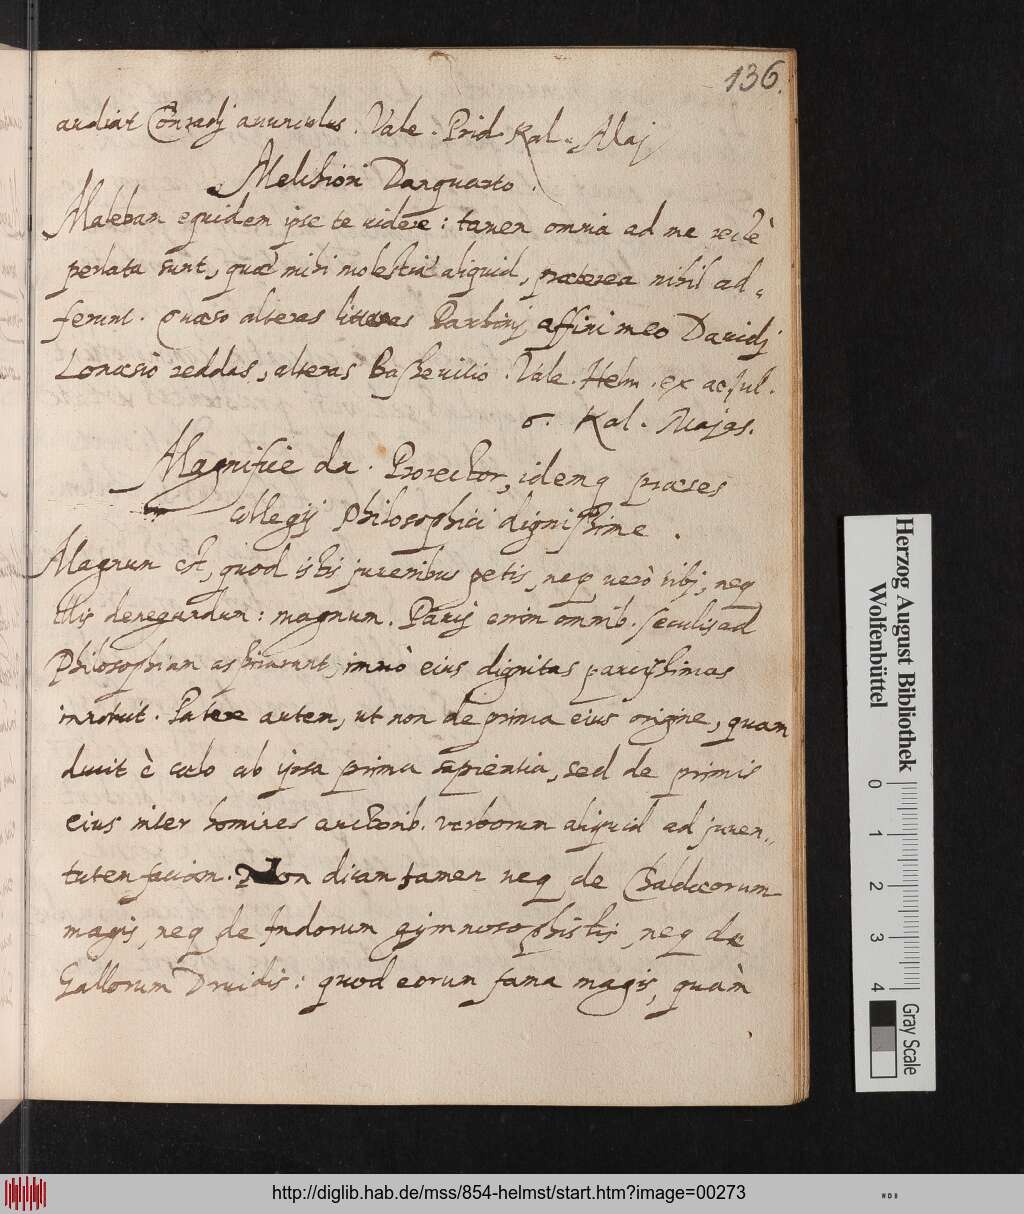 136.
audiat Conradj auunculus. Vale. Prid. Kal. Maj
Melchiori Danquarto.
Maleban equidem ipse te videre: tamen omnia ad me rectè
perlata sunt, quae mihi molestiae aliquid, praeterea nihil ad-
ferunt. Quaeso alteras litteras Parthinj affini meo Davidj
reddas, alteras Vale. Helm. ex ac. Jul.
6. Kal. Majas.
Magnifice dn. Prorector, idemq praeses
collegij philosophici dignissime.
Magnum est, quod istis juvenibus petis, neq verò tibj, neq
illis denegandum: magnum. Paucj enim omnib. seculis ad
Philosophiam aspirarunt, immò eius dignitas paucissimas
innotuit. Patere autem, ut non de prima eius origine, quam
ducit è coelo ab ipsa prima sapientia, sed de primis
eius inter homines auctorib. verborum aliquid ad juven-
tutem faciam. Non dicam tamen neq de Chaldaeorum
magis, neq de Indorum gymnosophistis, neq de
Gallorum Druidis: quod eorum fama magis, quàm
Herzog August Bibliothek
Wolfenbüttel
0 1 2 3 4
Gray Scale
http://diglib.hab.de/mss/854-helmst/start.htm?image=00273
WDB